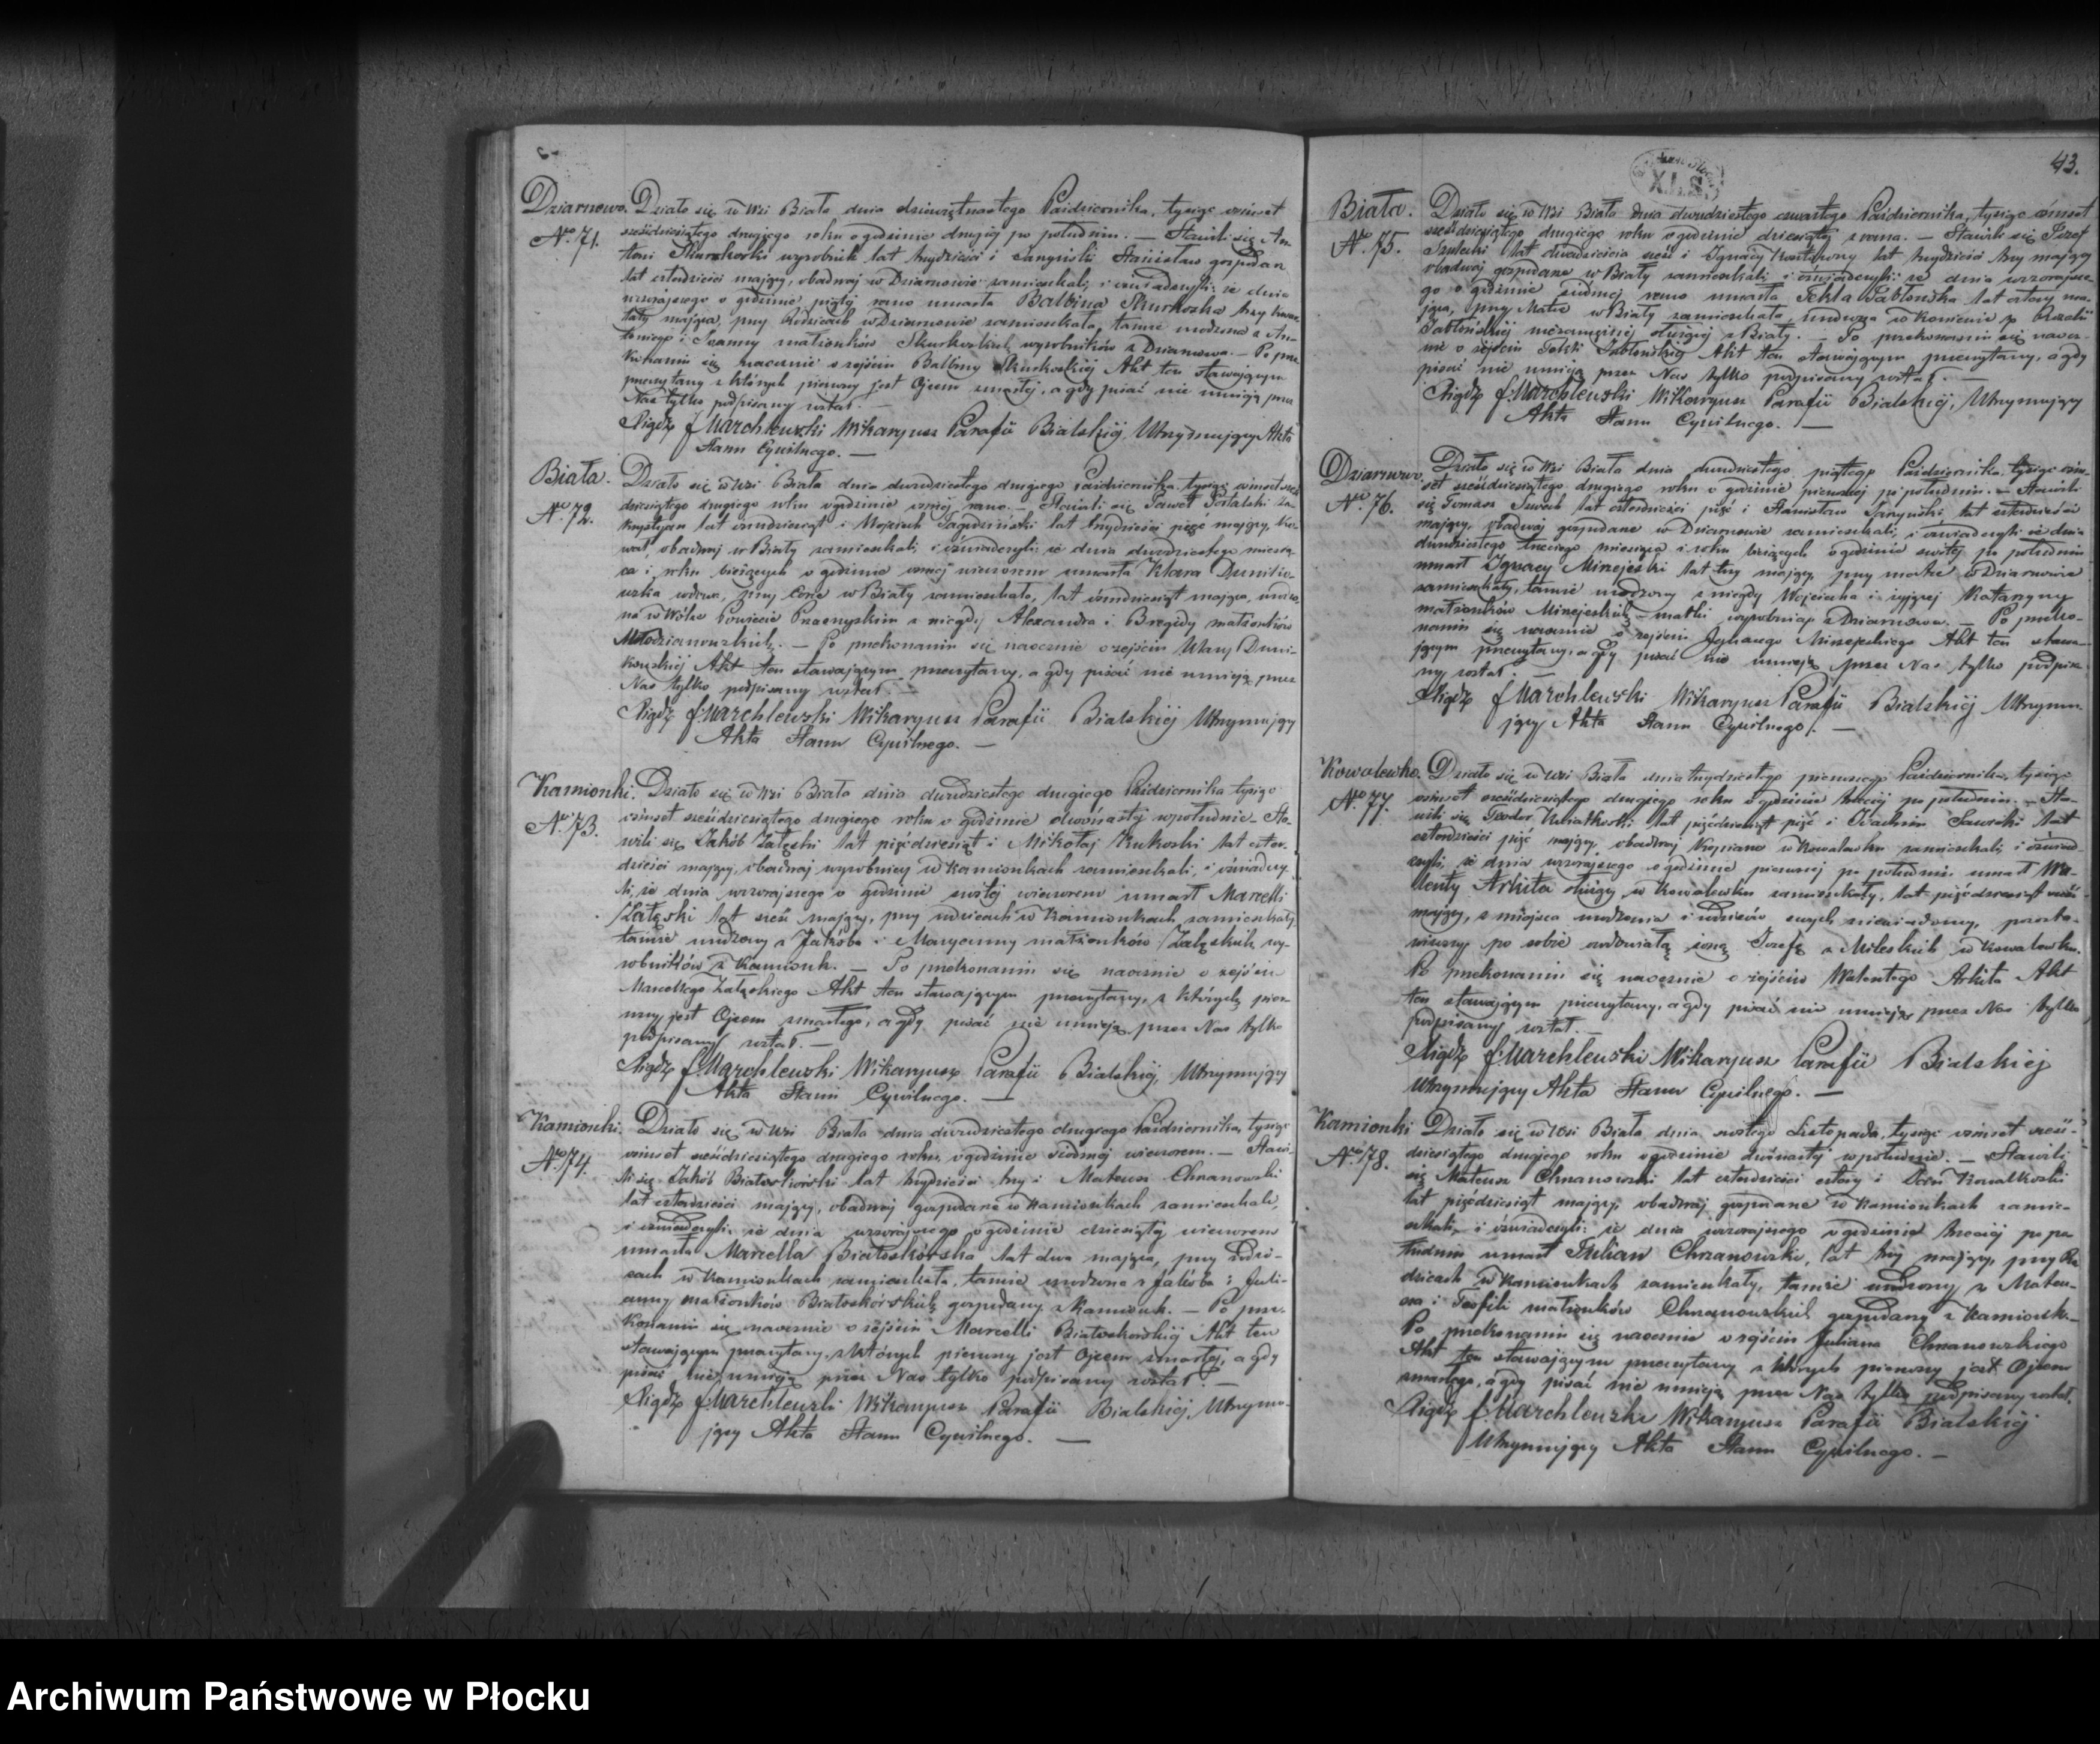 Dziarnowo.
No. 71.
Działo się w Wsi Biała dnia dziewiętnastego Października, tysiąc ośmset
sześćdziesiątego drugiego roku o godzinie drugiej po południu. — Stawili się An-
toni Skurkoski wyrobnik lat trzydzieści i Stanisław gospodarz
lat czterdzieści mający, obadwaj w Dziarnowie zamieszkali, i oświadczyli; że dnia
wczorajszego o godzinie piątej rano umarła Balbina Skurkoska trzy
lata mająca, przy Rodzicach w Dziarnowie zamieszkała, tamże urodzona z An-
toniego i Joanny małżonków Skurkoskich wyrobników z Dziarnowa. — Po prze-
konaniu się naocznie o zejściu Balbiny Skurkoskiéj Akt ten stawającym
przeczytany z których pierwszy jest Ojcem zmarłej, a gdy pisać nie umieją przez
Nas tylko podpisany został. —
Xiądz J Marchlewski Wikaryusz Parafii Bialskiéj, Utrzymujący Akta
Stanu Cywilnego. —
Biała.
No. 72.
Działo się w Wsi Biała dnia dwudziestego drugiego Października tysiąc ośmset sześć-
dziesiątego drugiego roku o godzinie ósmej rano. — Stawili się Paweł Za-
krystyan lat ośmdziesiąt i Wojciech lat trzydzieści pięć mający,
obadwaj w Biały zamieszkali, i oświadczyli; że dnia dwudziestego miesią-
ca i roku bieżących o godzinie ósmej wieczorem umarła Klara
wdowa, przy Córce w Biały zamieszkała, lat ośmdziesiąt mająca, urodzo-
na w Wólce Powiecie Przasnyskim z niegdy Alexandra i Brygidy małżonków
Młodzianowskich. — Po przekonaniu się naocznie o zejściu Klary
Akt ten stawającym przeczytany, a gdy pisać nie umieją przez
Nas tylko podpisany został. —
Xiądz J Marchlewski Wikaryusz Parafii Bialskiéj Utrzymujący
Akta Stanu Cywilnego. —
Kamionki.
No. 73.
Działo się w Wsi Biała dnia dwudziestego drugiego Października tysiąc
ośmset sześćdziesiątego drugiego roku o godzinie dwónastej w południe. — Sta-
wili się Jakób Załęski lat pięćdziesiąt i Mikołaj Kukoski lat czter-
dzieści mający, obadwaj wyrobnicy w Kamionkach zamieszkali, i oświadczy-
li; że dnia wczorajszego o godzinie szóstej wieczorem umarł Marcelli
Załęski lat sześć mający, przy rodzicach w Kamionkach zamieszkały,
tamże urodzony z Jakóba i Maryanny małżonków Załęskich wy-
robników z Kamionk. — Po przekonaniu się naocznie o zejściu
Marcellego Załęskiego Akt ten stawającym przeczytany, z których pierw-
szy jest Ojcem zmarłego, a gdy pisać nie umieją, przez Nas tylko
podpisany został. —
Xiądz J Marchlewski Wikaryusz Parafii Bialskiéj, Utrzymujący
Akta Stanu Cywilnego. —
Kamionki.
No. 74.
Działo się w Wsi Biała dnia dwudziestego drugiego Października, tysiąc
ośmset sześćdziesiątego drugiego roku o godzinie siódmej wieczorem. — Stawi-
li się Jakób Białoskórski lat trzydzieści trzy i Mateusz Chrzanowski
lat czterdzieści mający, obadwaj gospodarze w Kamionkach zamieszkali,
i oświadczyli; że dnia wczorajszego o godzinie dziesiątej wieczorem
umarła Marcella Białoskórska lat dwa mająca, przy Rodzi-
cach w Kamionkach zamieszkała, tamże urodzona z Jakóba i Juli-
anny małżonków Białoskórskich gospodarzy z Kamionk. — Po prze-
konaniu się naocznie o zejściu Marcelli Białoskórskiéj Akt ten
stawającym przeczytany, z których pierwszy jest Ojcem zmarłej, a gdy
pisać nie umieją przez Nas tylko podpisany został. —
Xiądz J Marchlewski Wikaryusz Parafii Bialskiéj, Utrzymu-
jący Akta Stanu Cywilnego. —
43.
X.L.S.
Biała.
No. 75.
Działo się w Wsi Biała dnia dwudziestego czwartego Października, tysiąc ośmset
sześćdziesiątego drugiego roku o godzinie dziesiątej z rana. — Stawili się Józef
Szulecki lat dwadzieścia sześć i Ignacy lat trzydzieści trzy mający
obadwaj gospodarze w Biały zamieszkali, i oświadczyli; że dnia wczorajsze-
go o godzinie siódmej rano umarła Tekla Jabłońska lat cztery ma-
jąca, przy Matce w Biały zamieszkała, urodzona w Kamienie z Rozalii
Jabłońskiéj niezamężnej służącej z Biały. — Po przekonaniu się naocz-
nie o zejściu Tekli Jabłońskiéj Akt ten stawającym przeczytany, a gdy
pisać nie umieją przez Nas tylko podpisany został. —
Xiądz J. Marchlewski Wikaryusz Parafii Bialskiéj, Utrzymujący
Akta Stanu Cywilnego. —
Dziarnowo.
No. 76.
Działo się w Wsi Biała dnia dwudziestego piątego Października, tysiąc ośm-
set sześćdziesiątego drugiego roku o godzinie pierwszej po południu. — Stawili
się Tomasz lat czterdzieści pięć i Stanisław lat czterdzieści
mający, obadwaj gospodarze w Dziarnowie zamieszkali, i oświadczyli że dnia
dwudziestego trzeciego miesiąca i roku bieżących o godzinie szóstej po południu
umarł Ignacy Minejeski lat trzy mający, przy matce w Dziarnowie
zamieszkały, tamże urodzony z niegdy Wojciecha i żyjącej Katarzyny
małżonków Minejeskich matki wyrobnicy z Dziarnowa. — Po przeko-
naniu się naocznie o zejściu Ignacego Minejeskiego Akt ten stawa-
jącym przeczytany, a gdy pisać nie umieją przez Nas tylko podpisa-
ny został. —
Xiądz J Marchlewski Wikaryusz Parafii Bialskiéj Utrzymu-
jący Akta Stanu Cywilnego. —
Kowalewko.
No. 77.
Działo się w Wsi Biała dnia trzydziestego pierwszego Października, tysiąc
ośmset sześćdziesiątego drugiego roku o godzinie trzeciej po południu. — Sta-
wili się Teodor Kwiatkoski lat pięćdziesiąt pięć i Joachim Sawicki lat
czterdzieści pięć mający, obadwaj w Kowalewku zamieszkali, i oświad-
czyli; że dnia wczorajszego o godzinie pierwszej po południu umarł Wa-
lenty Arkita służący w Kowalewku zamieszkały, lat pięćdziesiąt sześć
mający, z miejsca urodzenia i rodziców swych niewiadomy, pozosta-
wiwszy po sobie owdowiałą żonę Józefę z Mileskich w Kowalewku.
Po przekonaniu się naocznie o zejściu Walentego Arkita Akt
ten stawającym przeczytany, a gdy pisać nie umieją przez Nas tylko
podpisany został. —
Xiądz J. Marchlewski Wikaryusz Parafii Bialskiej
Utrzymujący Akta Stanu Cywilnego. —
Kamionki
No. 78.
Działo się w Wsi Biała dnia szóstego Listopada, tysiąc ośmset sześć-
dziesiątego drugiego roku o godzinie dwónastej w południe. — Stawili
się Mateusz Chrzanowski lat czterdzieści cztery i Kowalkoski
lat pięćdziesiąt mający, obadwaj gospodarze w Kamionkach zamie-
szkali, i oświadczyli; że dnia wczorajszego o godzinie trzeciej po po-
łudniu umarł Julian Chrzanowski, lat trzy mający, przy Ro-
dzicach w Kamionkach zamieszkały, tamże urodzony z Mateu-
sza i Teofili małżonków Chrzanowskich gospodarzy z Kamionk. —
Po przekonaniu się naocznie o zejściu Juliana Chrzanowskiego
Akt ten stawającym przeczytany z których pierwszy jest Ojcem
zmarłego, a gdy pisać nie umieją przez Nas tylko podpisany został.
Xiądz J Marchlewski Wikaryusz Parafii Bialskiéj
Utrzymujący Akta Stanu Cywilnego. —
Archiwum Państwowe w Płocku